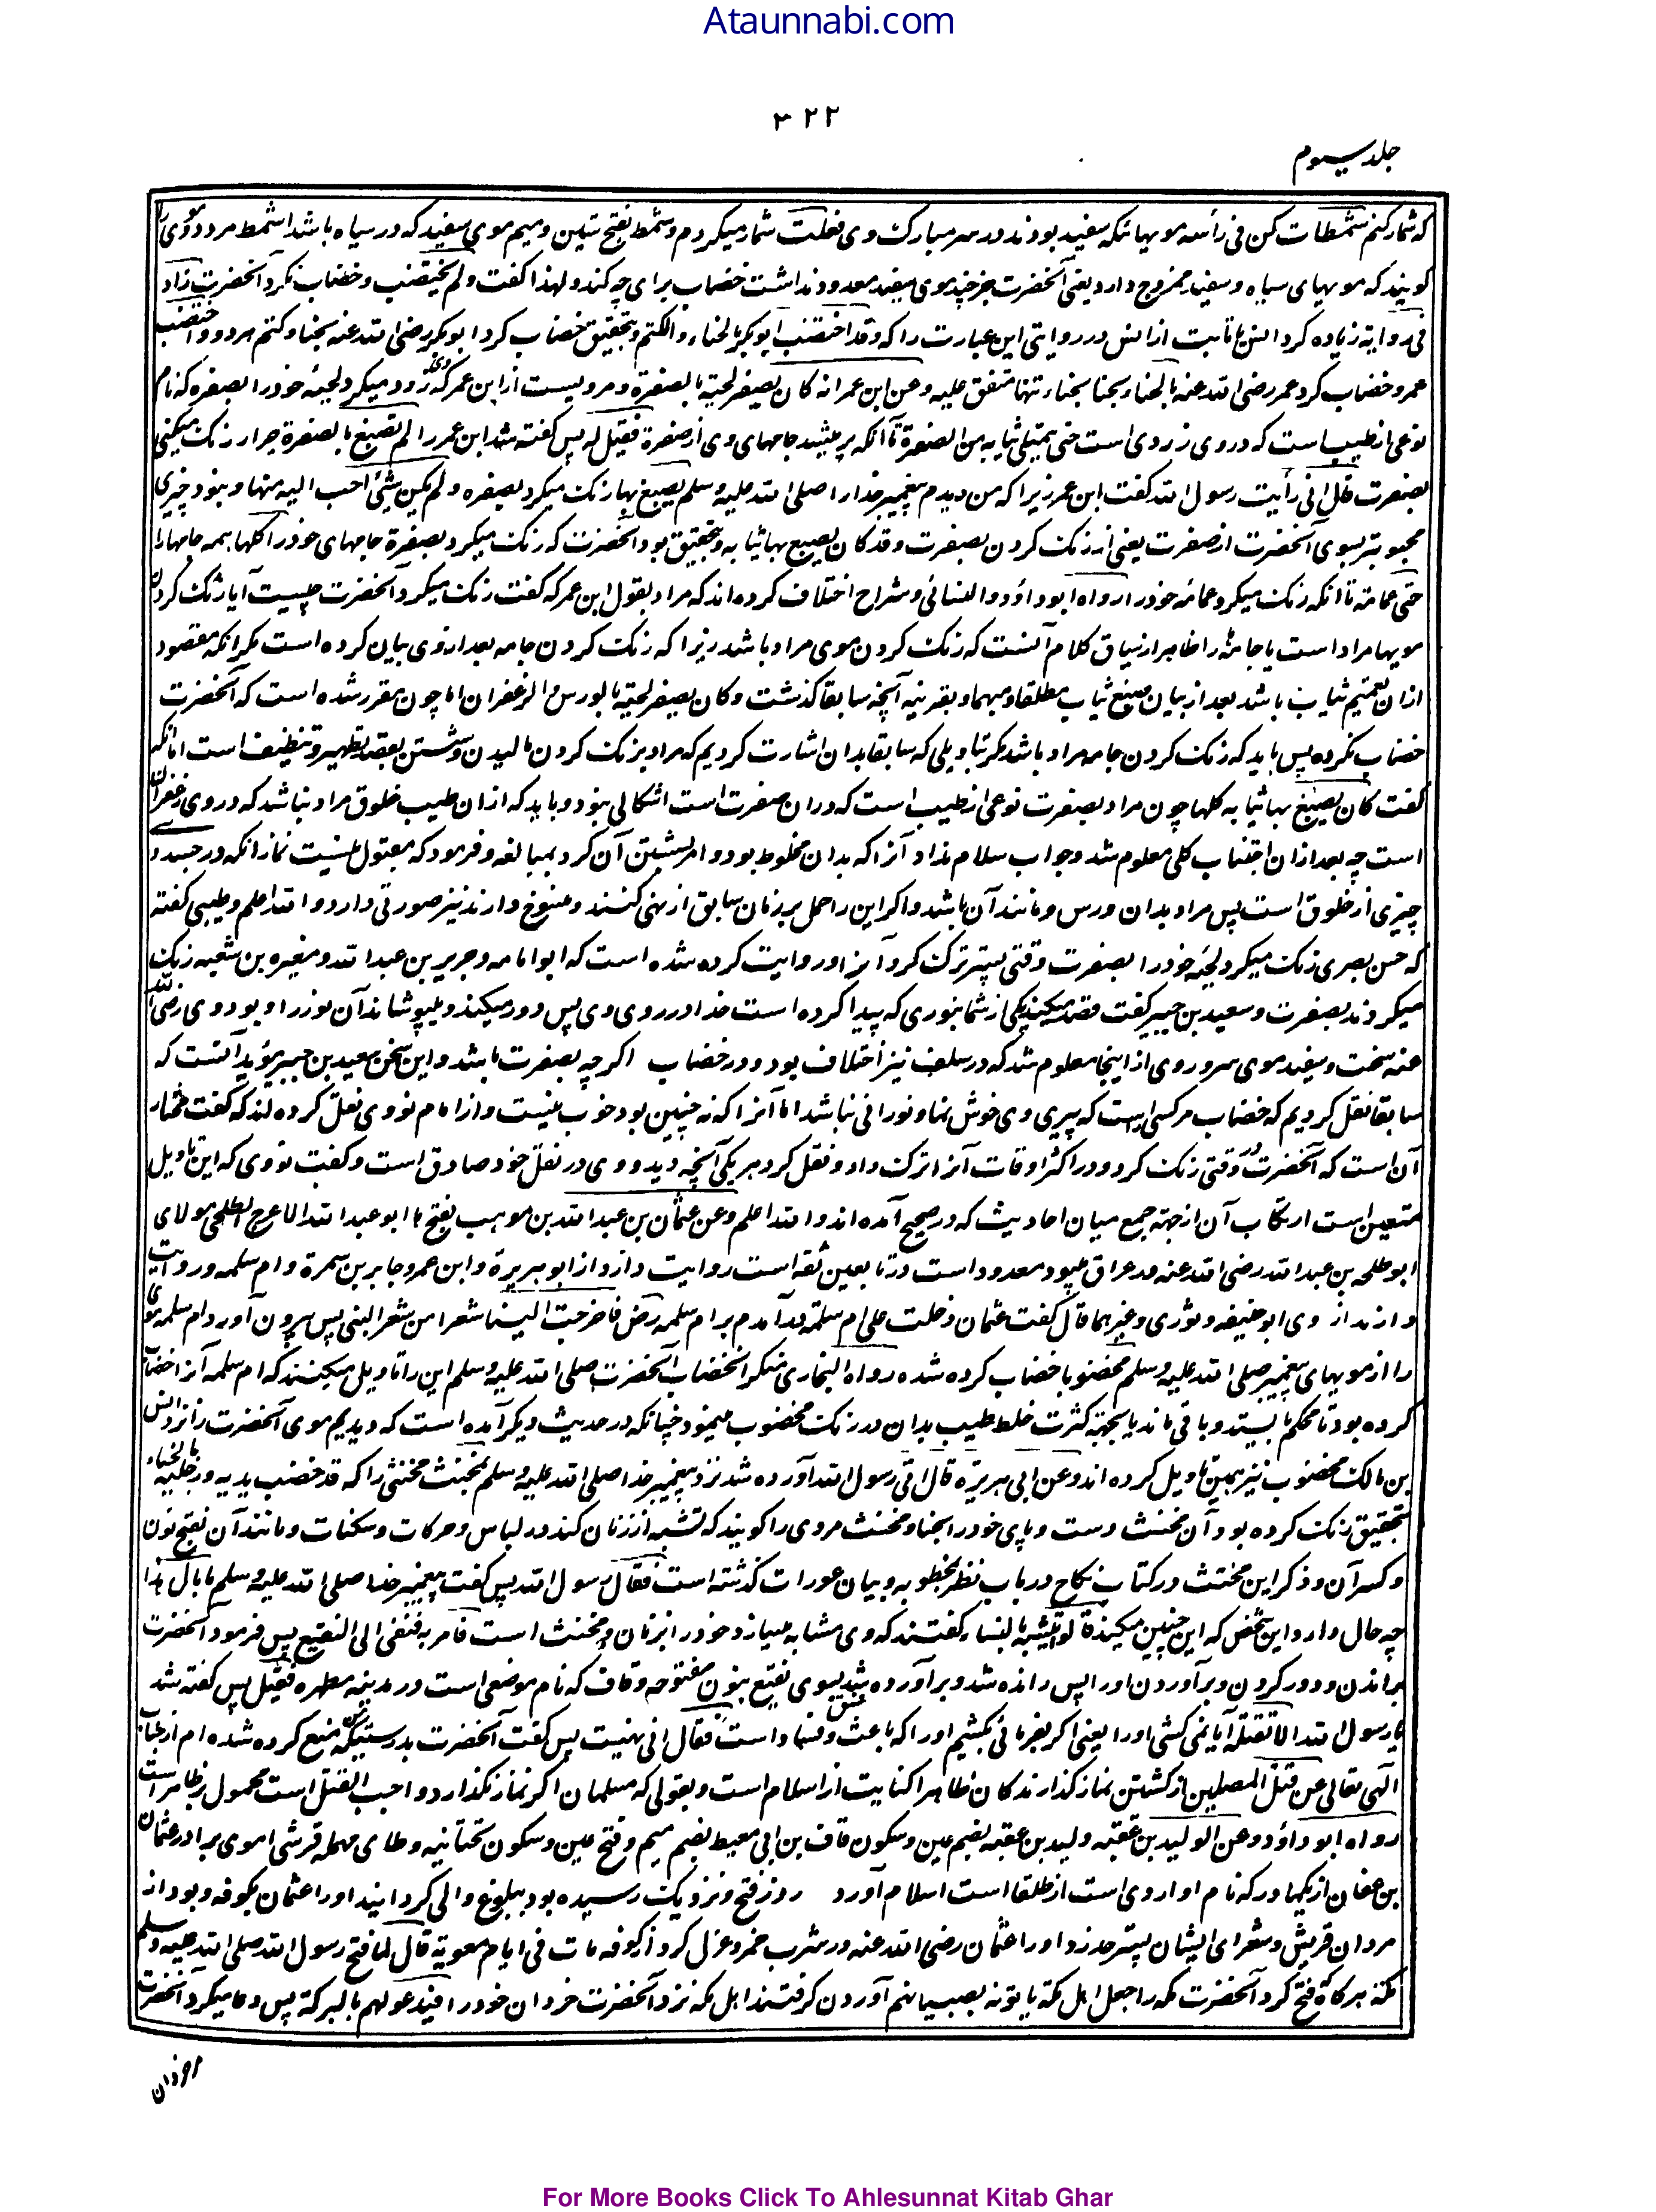 Ataunnabi.com
۳۲۲
جلد سیوم
که شمار کنم شمطات کن فی رأسه مویهائیکه سفید بودند در سر مبارک وی فعلت شمار میکردم و شمط بفتح شین و میم موی سفید که در سیاه باشد اشمط مرد دو موی را
گویند که مویهای سیاه و سفید ممزوج دارد یعنی آنحضرت جز چند موی سفید معدود نداشت خضاب برای چه کند ولهذا گفت ولم یختضب و خضاب نکرد آنحضرت زاد
فی روایة زیاده کرد انس یا ثابت از انس در روایتی این عبارت را که وقد اختضب ابوبکر بالحناء والکتم و بتحقیق خضاب کرد ابوبکر رضی الله عنه بحنا و کتم هر دو و اختضب
عمر و خضاب کرد عمر رضی الله عنه بالحناء بحنا بحناء تنها متفق علیه وعن ابن عمر انه کان یصفر لحیته بالصفرة و مرویست از ابن عمر که وی زرد میکرد لحیهٔ خود را بصفره که نام
نوعی از طیب است که در وی زردی است حتی یمتلی ثیابه من الصفرة تا آنکه پر میشد جامهای وی از صفرة فقیل له پس گفته شد ابن عمر را لم تصبغ بالصفرة چرا رنگ میکنی
بصفرت قال انی رأیت رسول الله گفت ابن عمر زیرا که من دیدم پیغمبر خدا را صلی الله علیه وسلم یصبغ بها رنگ میکرد بصفره ولم یکن شیٔ احب الیه منها و نبود چیزی
محبوبتر بسوی آنحضرت از صفرت یعنی از رنگ کردن بصفرت وقد کان یصبغ بها ثیابه و بتحقیق بود آنحضرت که رنگ میکرد بصفرة جامهای خود را کلها همه جامها را
حتی عمامته تا آنکه رنگ میکرد عمامهٔ خود را رواه ابوداؤد والنسائی و شراح اختلاف کرده اند که مراد بقول ابن عمر که گفت رنگ میکرد آنحضرت چیست آیا رنگ کردن
مویها مراد است یا جامها را ظاهر از سیاق کلام آنست که رنگ کردن موی مراد باشد زیرا که رنگ کردن جامه بعد از وی بیان کرده است مگر آنکه مقصود
ازان تعمیم ثیاب باشد بعد از بیان صبغ ثیاب مطلقا و مبهما و بقرینه آنچه سابقا گذشت وکان یصفر لحیته بالورس والزعفران اما چون مقرر شده است که آنحضرت
خضاب نکرده پس باید که رنگ کردن جامه مراد باشد مگر بتاویلی که سابقا بدان اشارت کردیم که مراد برنگ کردن مالیدن و شستن بقصد تطهیر و تنظیف است اما آنکه
گفت کان یصبغ بها ثیابه کلها چون مراد بصفرت نوعی از طیب است که دران صفرت است اشکالی نبود و باید که ازان طیب خلوق مراد نباشد که در وی زعفران
است چه بعد ازان اجتناب کلی معلوم شد و جواب سلام نداد آنرا که بدان مخلوط بود و امر بشستن آن کرد بمبالغه و فرمود که مقبول نیست نماز آنکه در جسد او
چیزی از خلوق است پس مراد بدان ورس و مانند آن باشد و اگر این را حمل بر زمان سابق از نهی کنند و منسوخ دارند نیز صورتی دارد والله اعلم و طیبی گفته
که حسن بصری رنگ میکرد لحیهٔ خود را بصفرت وقتی پستر ترک کرد آنرا و روایت کرده شده است که ابوامامه و جریر بن عبدالله و مغیره بن شعبه رنگ
میکردند بصفرت و سعید بن جبیر گفت قصد میکند یکی از شما بنوری که پیدا کرده است خدا در روی وی پس دور میکند و میپوشاند آن نور را و بود وی رضی الله
عنه سخت سفید موی سر و روی از اینجا معلوم شد که در سلف نیز اختلاف بود در خضاب اگرچه بصفرت باشد و این سخن سعید بن جبیر مؤید آنست که
سابقا نقل کردیم که خضاب مرکسی راست که پیری وی خوش نما و نورانی نباشد اما آنرا که نه چنین بود خوب نیست و از امام نووی نقل کرده اند که گفت مختار
آن است که آنحضرت در وقتی رنگ کرد و در اکثر اوقات آنرا ترک داد و نقل کرد هر یکی آنچه دید و وی در نقل خود صادق است و گفت نووی که این تاویل
متعین است ارتکاب آن از جهة جمع میان احادیث که در صحیح آمده اند والله اعلم وعن عثمان بن عبدالله بن موهب بفتح ها ابوعبدالله الاعرج الطلحی مولای
ابوطلحه بن عبدالله رضی الله عنه در عراق میبود معدود است در تابعین ثقه است روایت دارد از ابوهریرة و ابن عمر و جابر بن سمرة و ام سلمه و روایت
دارند از وی ابوحنیفه و ثوری و غیرهما قال گفت عثمان دخلت علی ام سلمة درآمدم بر ام سلمه رض فاخرجت الینا شعرا من شعر النبی پس بیرون آورد ام سلمه موی
را از مویهای پیغمبر صلی الله علیه وسلم مخضوبا خضاب کرده شده رواه البخاری منکر انخضاب آنحضرت صلی الله علیه وسلم این را تاویل میکنند که ام سلمه آنرا خضاب
کرده بود تا محکم بایستد و باقی ماند یا بجهة کثرت خلط طیب بدان در رنگ مخضوب مینمود چنانکه در حدیث دیگر آمده است که دیدیم موی آنحضرت را نزد انس
بن مالک مخضوب نیز همین تاویل کرده اند وعن ابی هریرة قال اتی رسول الله آورده شد نزد پیغمبر خدا صلی الله علیه وسلم بمخنث مخنثی را که قد خضب یدیه ورجلیه بالحناء
بتحقیق رنگ کرده بود آن مخنث دست و پای خود را بحنا و مخنث مردی را گویند که تشبه از زنان کند در لباس و حرکات و سکنات و مانند آن بفتح نون
و کسر آن و ذکر این مخنث در کتاب نکاح در باب نظر بمخطوبه و بیان عورات گذشته است فقال رسول الله پس گفت پیغمبر خدا صلی الله علیه وسلم ما بال هذا
چه حال دارد این شخص که این چنین میکند قالوا یتشبه بالنساء گفتند که وی مشابه میسازد خود را بزنان و مخنث است فامر به فنفی الی النقیع پس فرمود آنحضرت
براندن و دور کردن و برآوردن او را پس رانده شد و برآورده شد بسوی نقیع بنون مفتوحه و قاف که نام موضعی است در مدینهٔ مطهره فقیل پس گفته شد
یا رسول الله الا تقتله آیا نمی کشی او را یعنی اگر بفرمائی بکشیم او را که باعث فتنه و فساد است فقال انی نهیت پس گفت آنحضرت بدرستیکه من منع کرده شده ام از جناب
الهی تعالی عن قتل المصلین از کشتن نماز گذارندگان ظاهرا کنایت از اسلام است و بقولی که مسلمان اگر نماز نگذارد واجب القتل است محمول بر ظاهر است
رواه ابوداؤد وعن الولید بن عقبه ولید بن عقبه بضم عین و سکون قاف بن ابی معیط بضم میم و فتح عین و سکون تحتانیه و طای مهمله قرشی اموی برادر عثمان
بن عفان از یکمادر که نام او اروی است از طلقا است اسلام آورد روز فتح و نزدیک رسیده بود ببلوغ والی گردانید او را عثمان بکوفه و بود از
مردان قریش و شعرای ایشان پستر حد زد او را عثمان رضی الله عنه در شرب خمر و عزل کرد از کوفه مات فی ایام معویة قال لما فتح رسول الله صلی الله علیه وسلم
مکة هرگاه فتح کرد آنحضرت مکه را جعل اهل مکة یاتونه بصبیانهم آوردن گرفتند اهل مکه نزد آنحضرت خردان خود را فیدعو لهم بالبرکة پس دعا میکرد آنحضرت
For More Books Click To Ahlesunnat Kitab Ghar